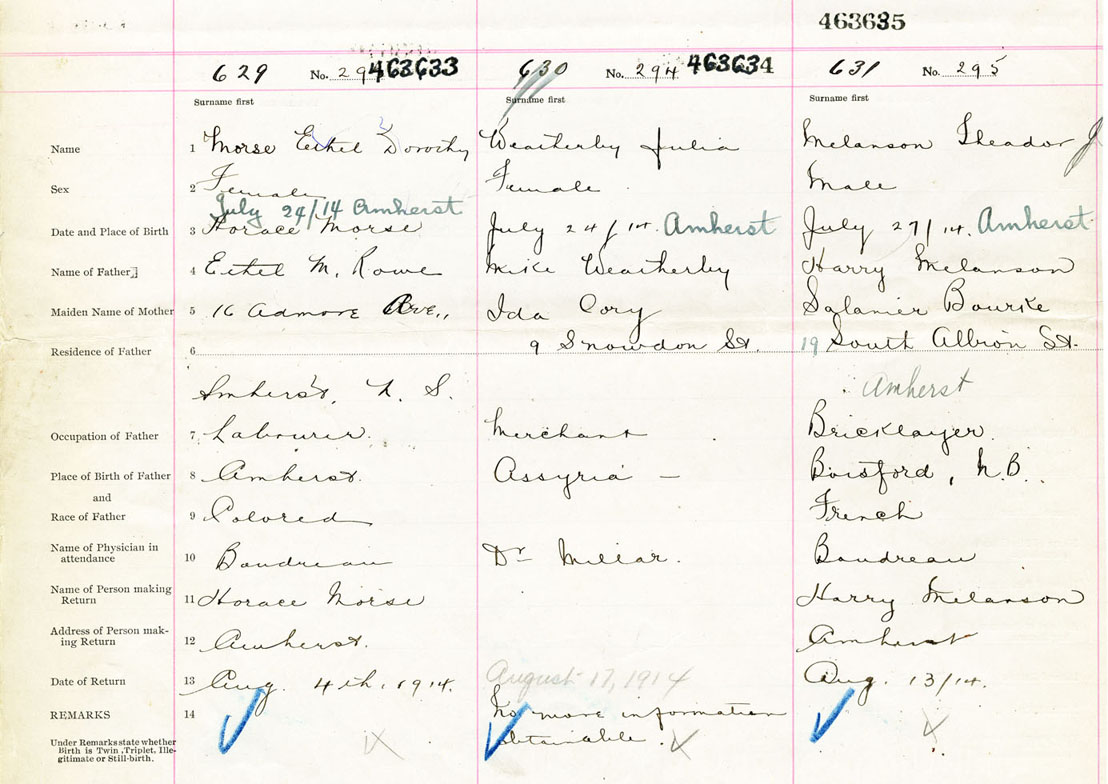 463635
629 No. 29 463633 630 No. 294 463634 631 No. 295
Surname first Surname first Surname first
Name 1 Morse Ethel Dorothy Weatherby Julia Melanson Theador J
Sex 2 Female Female Male
July 24/14 Amherst
Date and Place of Birth 3 Horace Morse July 24/14. Amherst July 27/14. Amherst
Name of Father 4 Ethel M. Rowe Mike Weatherby Harry Melanson
Maiden Name of Mother 5 16 Admore Ave., Ida Cory Salanier Bourke
Residence of Father 6 9 Snowdon St. 19 South Albion St.
Amherst, N. S. Amherst
Occupation of Father 7 Labourer. Merchant Bricklayer.
Place of Birth of Father 8 Amherst. Assyria — Botsford, N.B.
and
Race of Father 9 Colored French
Name of Physician in
attendance 10 Boudreau Dr Millar. Boudreau
Name of Person making
Return 11 Horace Morse Harry Melanson
Address of Person mak-
ing Return 12 Amherst. Amherst
Date of Return 13 Aug. 4th, 1914. August 17, 1914 Aug. 13/14.
REMARKS 14 No more information
obtainable.
Under Remarks state whether
Birth is Twin, Triplet, Ille-
gitimate or Still-birth.